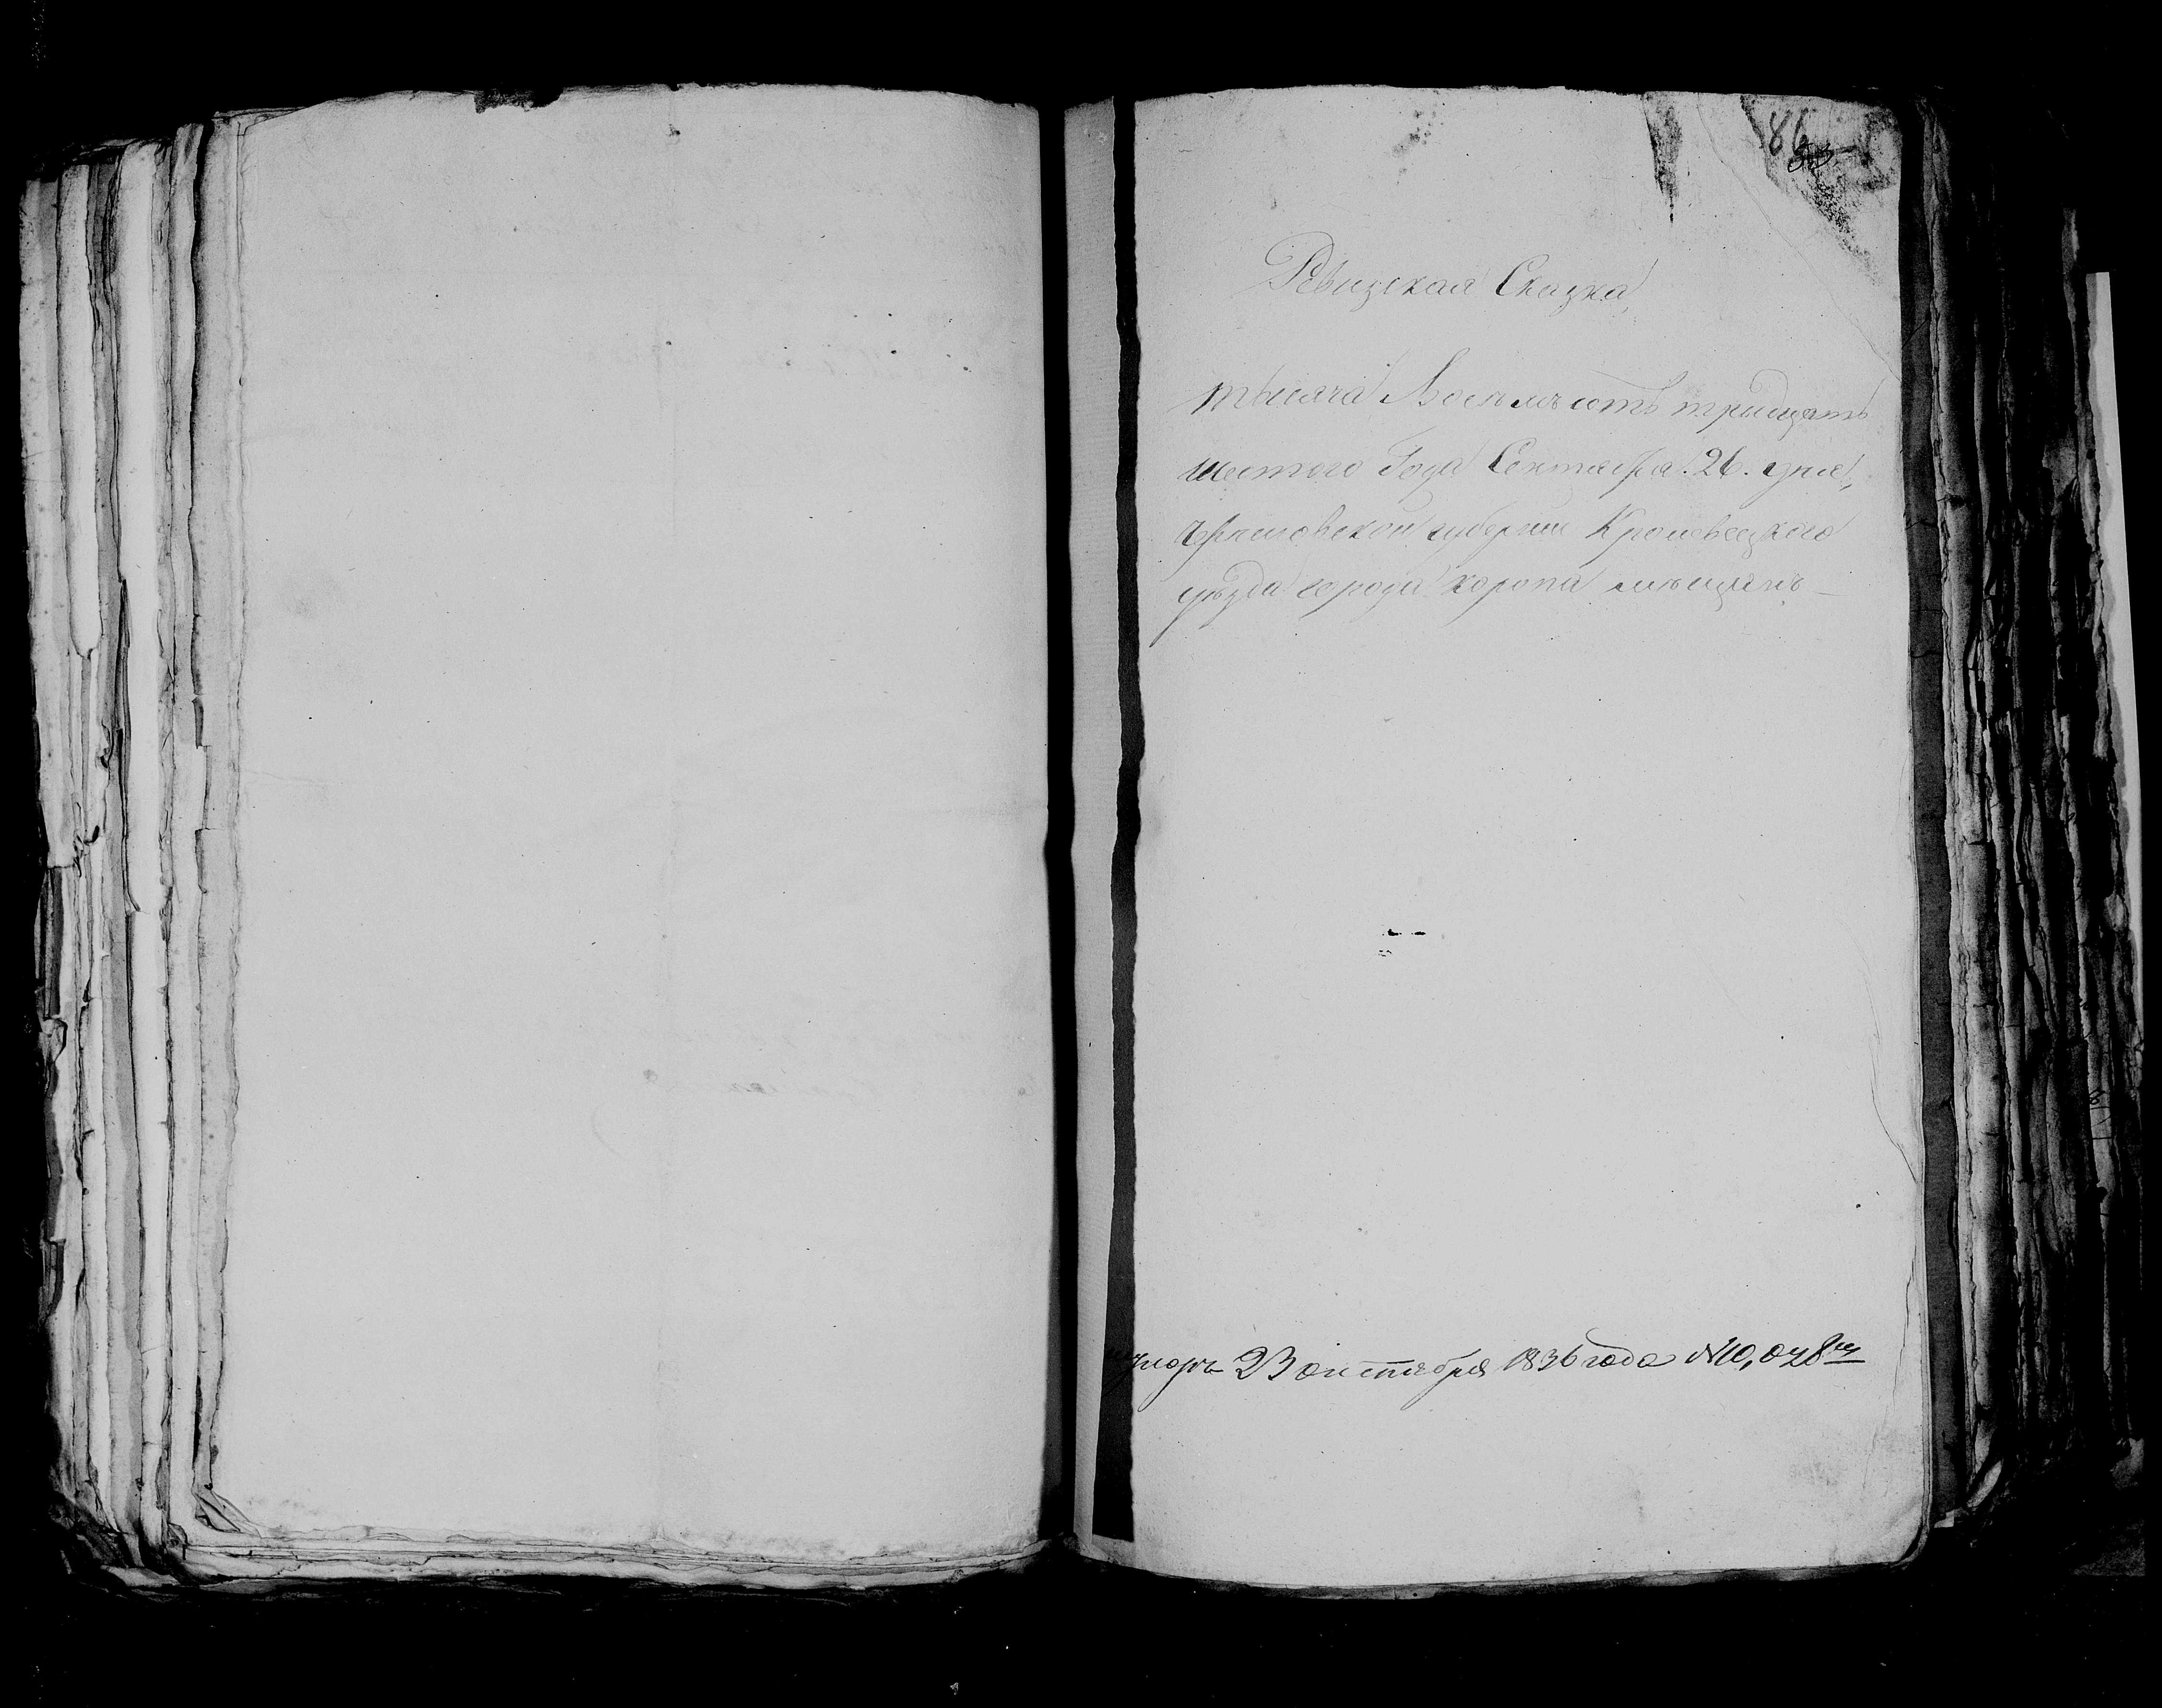 86
Ревизская Сказка,
тысяча Восемьсотъ тридцать
шестого Года Сентября. 26. дня,
черниговской губернии Кролевецкого
уѣзда города Коропа мѣщанъ
23 октября 1836 года №10,078